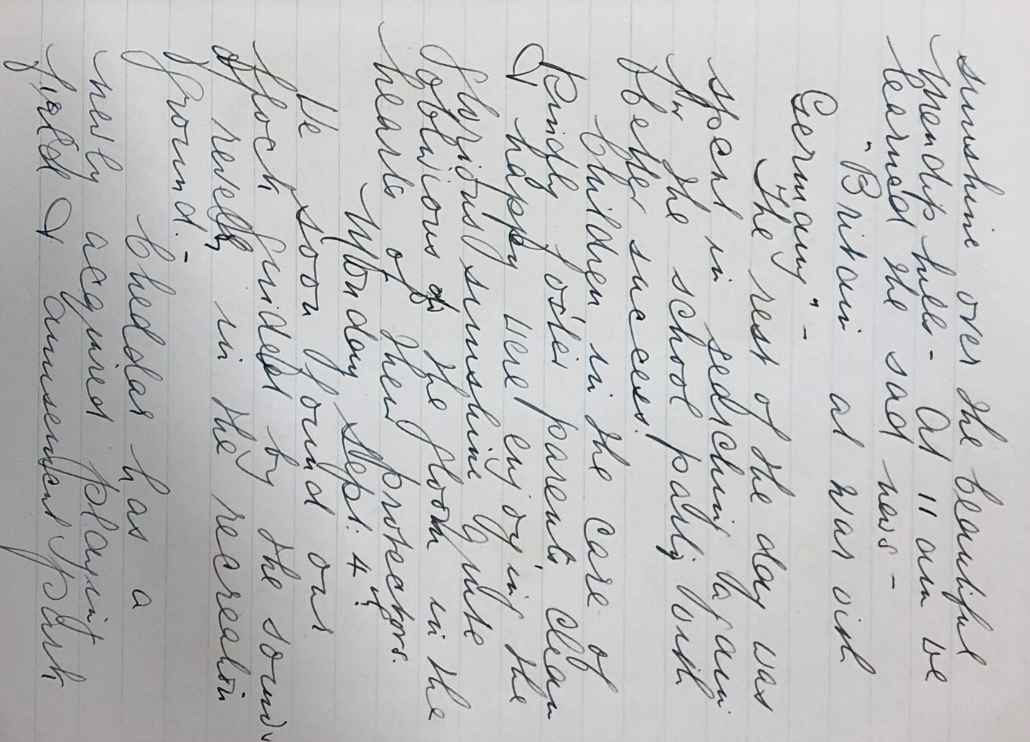 sunshine over the beautiful
Mendip hills - At 11 am we
learned the sad news -
"Britain at war with
Germany" -
The rest of the day was
spent in searching again
for the school party with
better success.
Children in the care of
kindly foster parents clean
& happy were enjoying the
glorious sunshine quite
oblivious to the gloom in the
hearts of their protectors.
Monday Sept. 4th.
We soon found our
flock guided by the sound
of revelry in the recreation
ground. -
Cheddar has a
newly acquired playing
field & amusement park